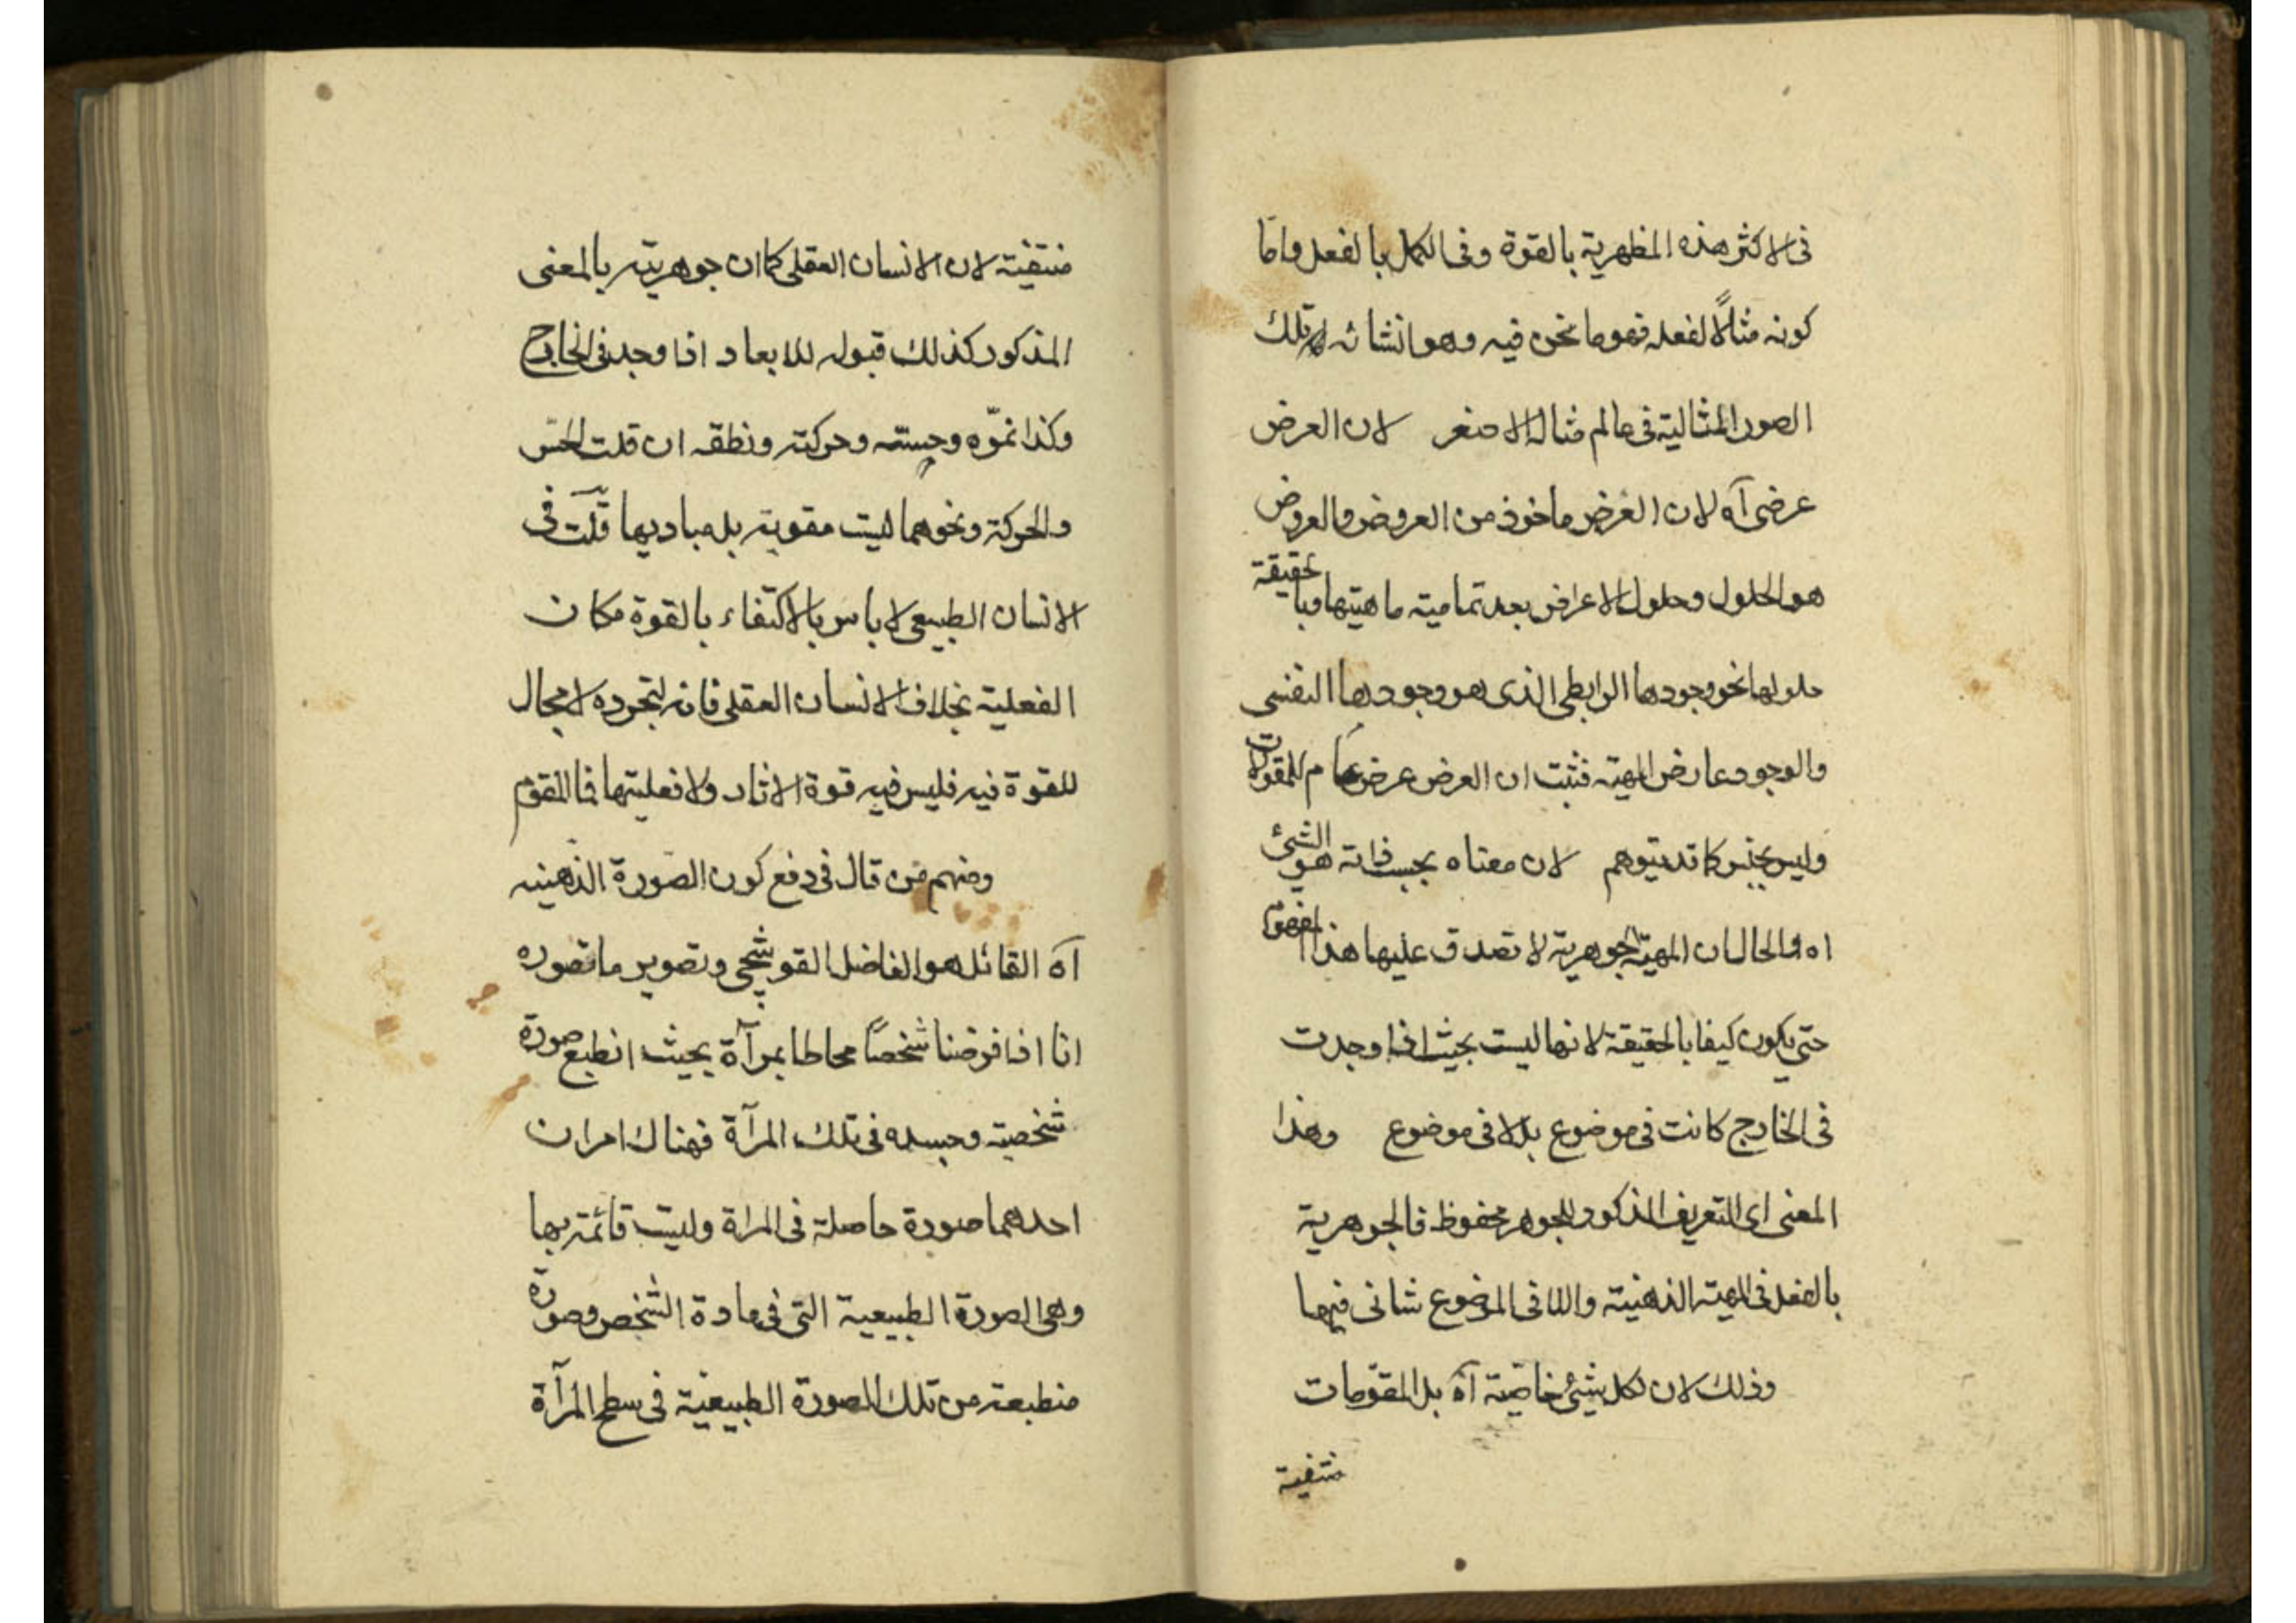 فى الاكثر هذه المظهرية بالقوة وفى الكمل بالفعل واما
كونه مثالاً لفعله فهو ما نحن فيه وهو انشائه تلك
الصور المثالية فى عالم مثاله الاصغر لان العرض
عرضى آه لان العرض ماخوذ من العروض والعروض
هو الحلول وحلول الاعراض بعد تمامية ماهيتها وبالحقيقة
حلولها نحو وجودها الرابطى الذى هو وجودها النفسى
والوجود عارض المهية فثبت ان العرض عرض عام للمقولات
وليس بجنس كما قد يتوهم لان معناه بحسب ذاته هو الشئ
اه والحال ان المهية الجوهرية لا تصدق عليها هذا المفهوم
حتى يكون كيفا بالحقيقة لانها ليست بحيث اذا وجدت
فى الخارج كانت فى موضوع بل لا فى موضوع وهذا
المعنى اى التعريف المذكور للجوهر محفوظ فالجوهرية
بالفعل فى المهية الذهنية واللا فى الموضوع شانى فيها
وذلك لان لكل شئ خاصّية آه بل المقوّمات
منتفية
منتفية لان الانسان العقلى كما ان جوهريته بالمعنى
المذكور كذلك قبوله للابعاد اذا وجد فى الخارج
وكذا نموّه وحسه وحركته ونطقه ان قلت الحسّ
والحركة ونحوهما ليست مقوية بل مباديها قلت فى
الانسان الطبيعى لا باس بالاكتفاء بالقوة مكان
الفعلية بخلاف الانسان العقلى فانه لتجرده لا مجال
للقوة فيه فليس فيه قوة الاثار ولا فعليتها فما المقوم
ومنهم من قال فى دفع كون الصورة الذهنيه
آه القائل هو الفاضل القوشجى وتصوير ما تصوره
انا اذا فرضنا شخصاً محاطا بمرآة بحيث انطبع صورة
شخصية وجسده فى تلك المرآة فهناك امران
احدهما صورة حاصلة فى المراة وليست قائمة بها
وهى الصورة الطبيعية التى فى مادة الشخص وصورة
منطبعة من تلك الصورة الطبيعية فى سطح المرآة